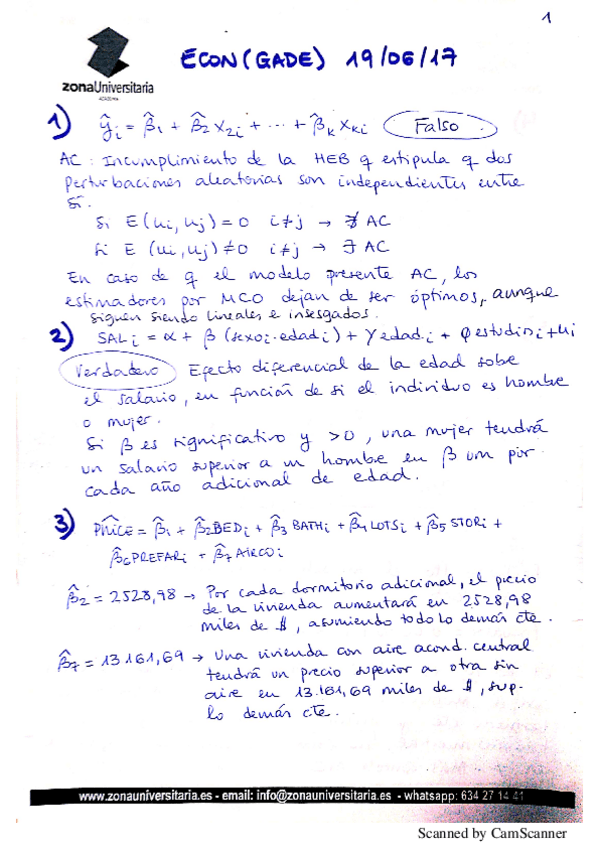 1
zonaUniversitaria
ACADEMIA
ECON (GADE) 19/06/17
1) ŷi = β̂1 + β̂2 X2i + ... + β̂k Xki Falso.
AC: Incumplimiento de la HEB q estipula q dos
perturbaciones aleatorias son independientes entre
sí.
Si E(ui, uj) = 0 i≠j → ∄ AC
Si E (ui, uj) ≠ 0 i≠j → ∃ AC
En caso de q el modelo presente AC, los
estimadores por MCO dejan de ser óptimos, aunque
siguen siendo lineales e insesgados.
2) SALi = α + β (sexoi·edadi) + γedadi + φestudiosi + ui
Verdadero Efecto diferencial de la edad sobe
el salario, en función de si el individuo es hombre
o mujer.
Si β es significativo y >0, una mujer tendrá
un salario superior a un hombre en β um por
cada año adicional de edad.
3) PRICÊ = β̂1 + β̂2BEDi + β̂3 BATHi + β̂4 LOTSi + β̂5 STORi +
β̂6PREFARi + β̂7AIRCOi
β̂2 = 2528,98 → Por cada dormitorio adicional, el precio
de la vivienda aumentará en 2528,98
miles de $, asumiendo todo lo demás cte.
β̂7 = 13.161,69 → Una vivienda con aire acond. central
tendrá un precio superior a otra sin
aire en 13.161,69 miles de $, sup.
lo demás cte.
www.zonauniversitaria.es - email: info@zonauniversitaria.es - whatsapp: 634 27 14 41
Scanned by CamScanner